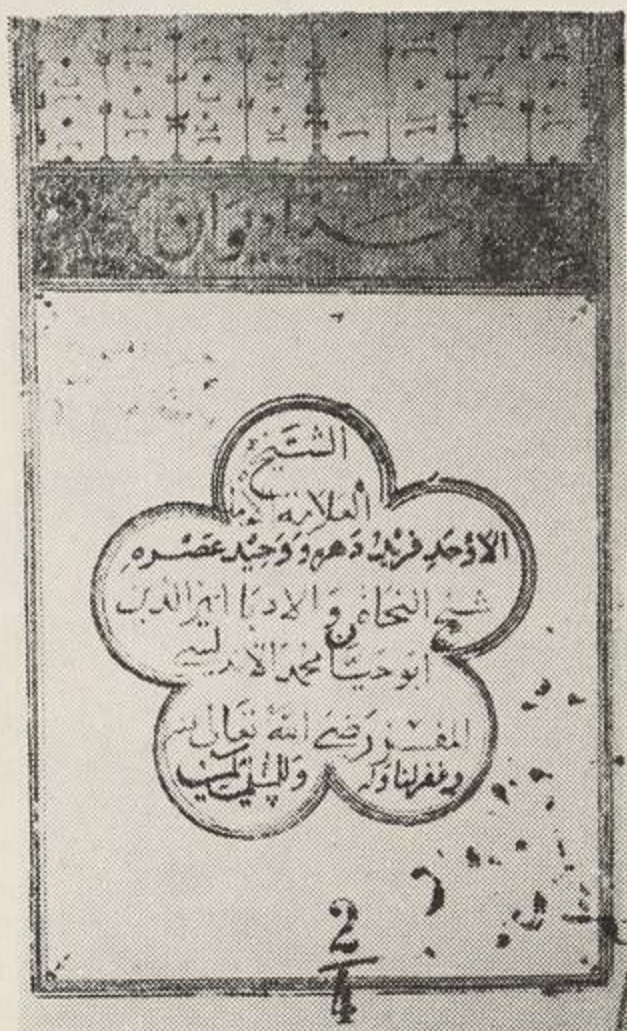 ديوان
الشيخ
العلامة
الاوحد فريد دهره ووحيد عصره
شيخ النحاة والادبا اثير الدين
ابو حيان محمد الاندلسي
المفسر رضي الله تعالى
وغفر لنا وله وللمسلمين
2
4